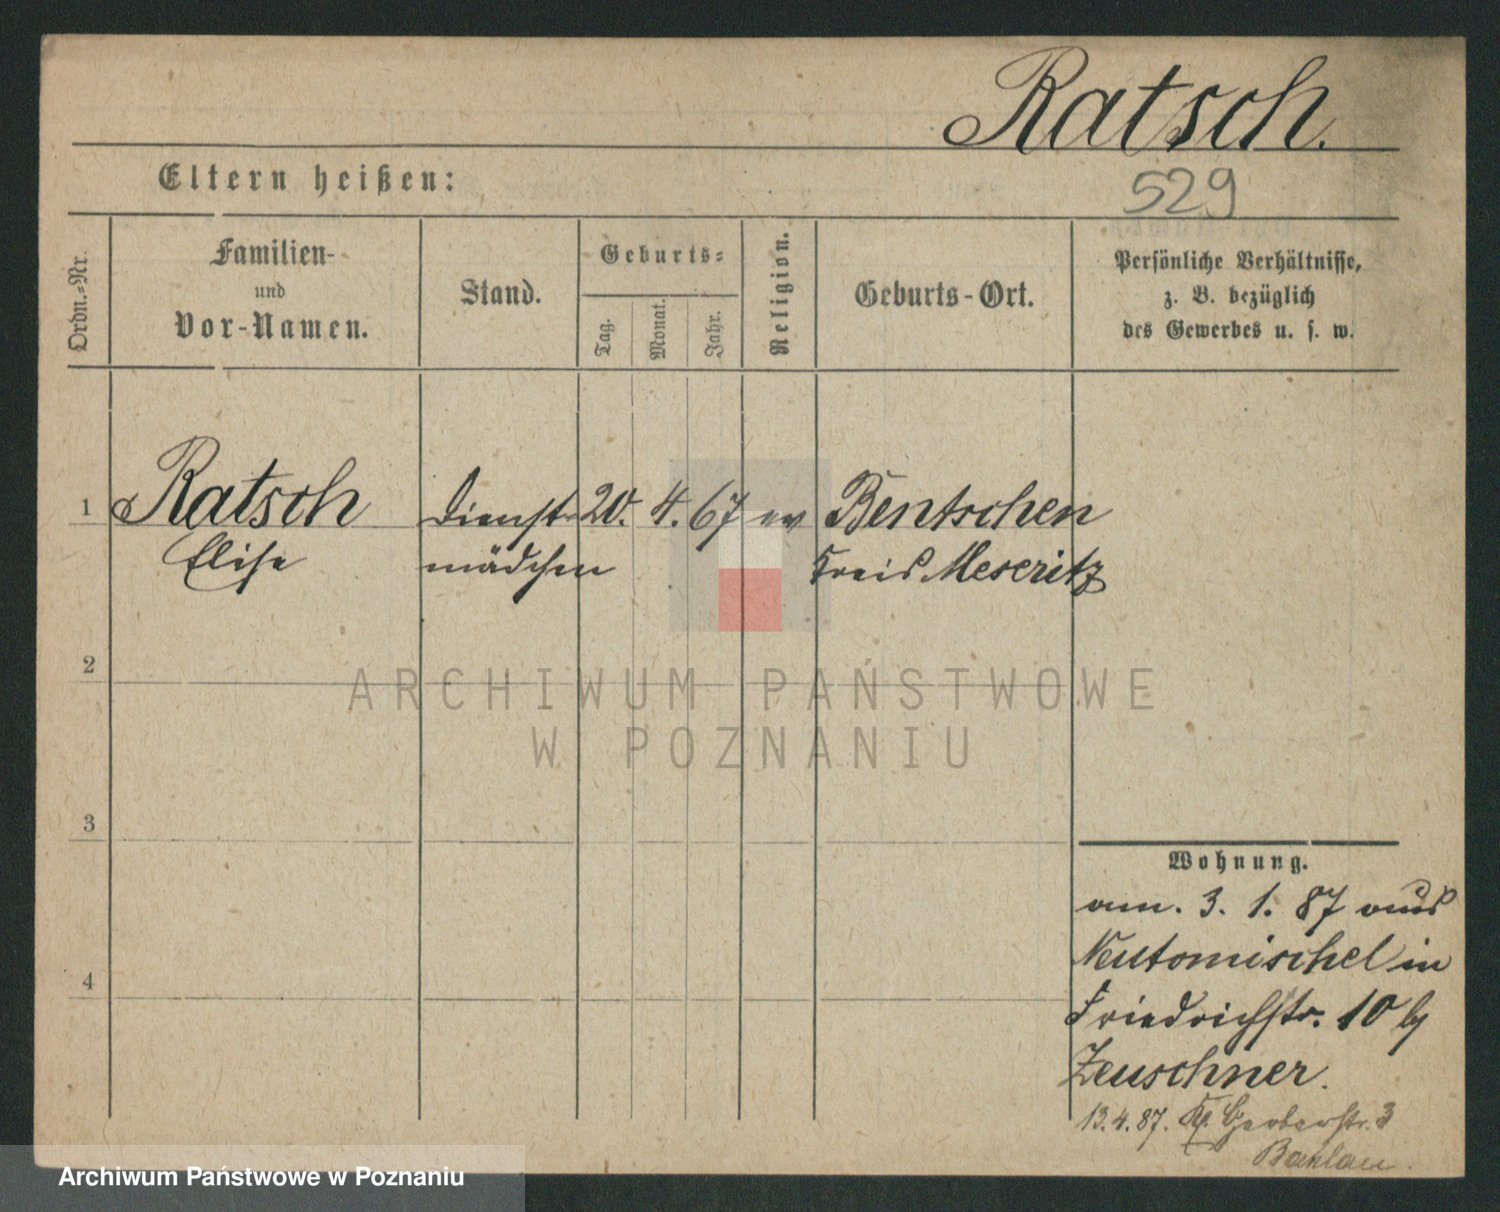 Ratsch.
529
Eltern heißen:
Ordn.-Nr.
Familien-
und
Vor-Namen.
Stand.
Geburts-
Tag.
Monat.
Jahr.
Religion.
Geburts-Ort.
Persönliche Verhältnisse,
z. B. bezüglich
des Gewerbes u. s. w.
1 Ratsch Dienst- 20. 4. 67 ev Bentschen
Elise mädchen Kreis Meseritz
2
3
4
Wohnung.
am. 3. 1. 87 aus
Neutomischel in
Friedrichstr. 10 by
Zeuschner.
13.4.87. Kl. Gerberstr. 3
ARCHIWUM PAŃSTWOWE
W POZNANIU
Archiwum Państwowe w Poznaniu